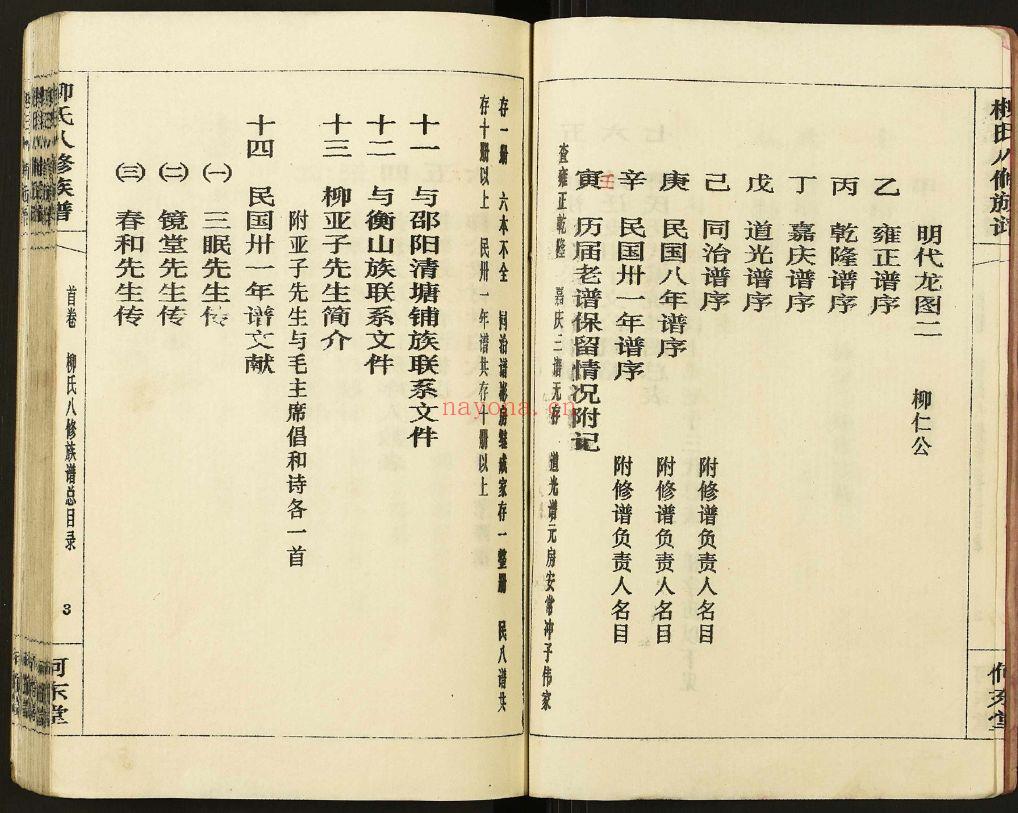 明代龙图二 柳仁公
乙 雍正谱序
丙 乾隆谱序
丁 嘉庆谱序
戊 道光谱序
己 同治谱序 附修谱负责人名目
庚 民国八年谱序 附修谱负责人名目
辛 民国卅一年谱序 附修谱负责人名目
寅 历届老谱保留情况附记
壬
查雍正乾隆 嘉庆三谱无存 道光谱元房安常冲子伟家
存一册 六本不全 同治谱彬房继咸家存一整册 民八谱共
存十册以上 民卅一年谱共存十册以上
十一 与邵阳清塘铺族联系文件
十二 与衡山族联系文件
十三 柳亚子先生简介
附亚子先生与毛主席倡和诗各一首
十四 民国卅一年谱文献
㈠ 三眠先生传
㈡ 镜堂先生传
㈢ 春和先生传
柳氏八修族谱
首卷 柳氏八修族谱总目录
3
河东堂
nayona.cn